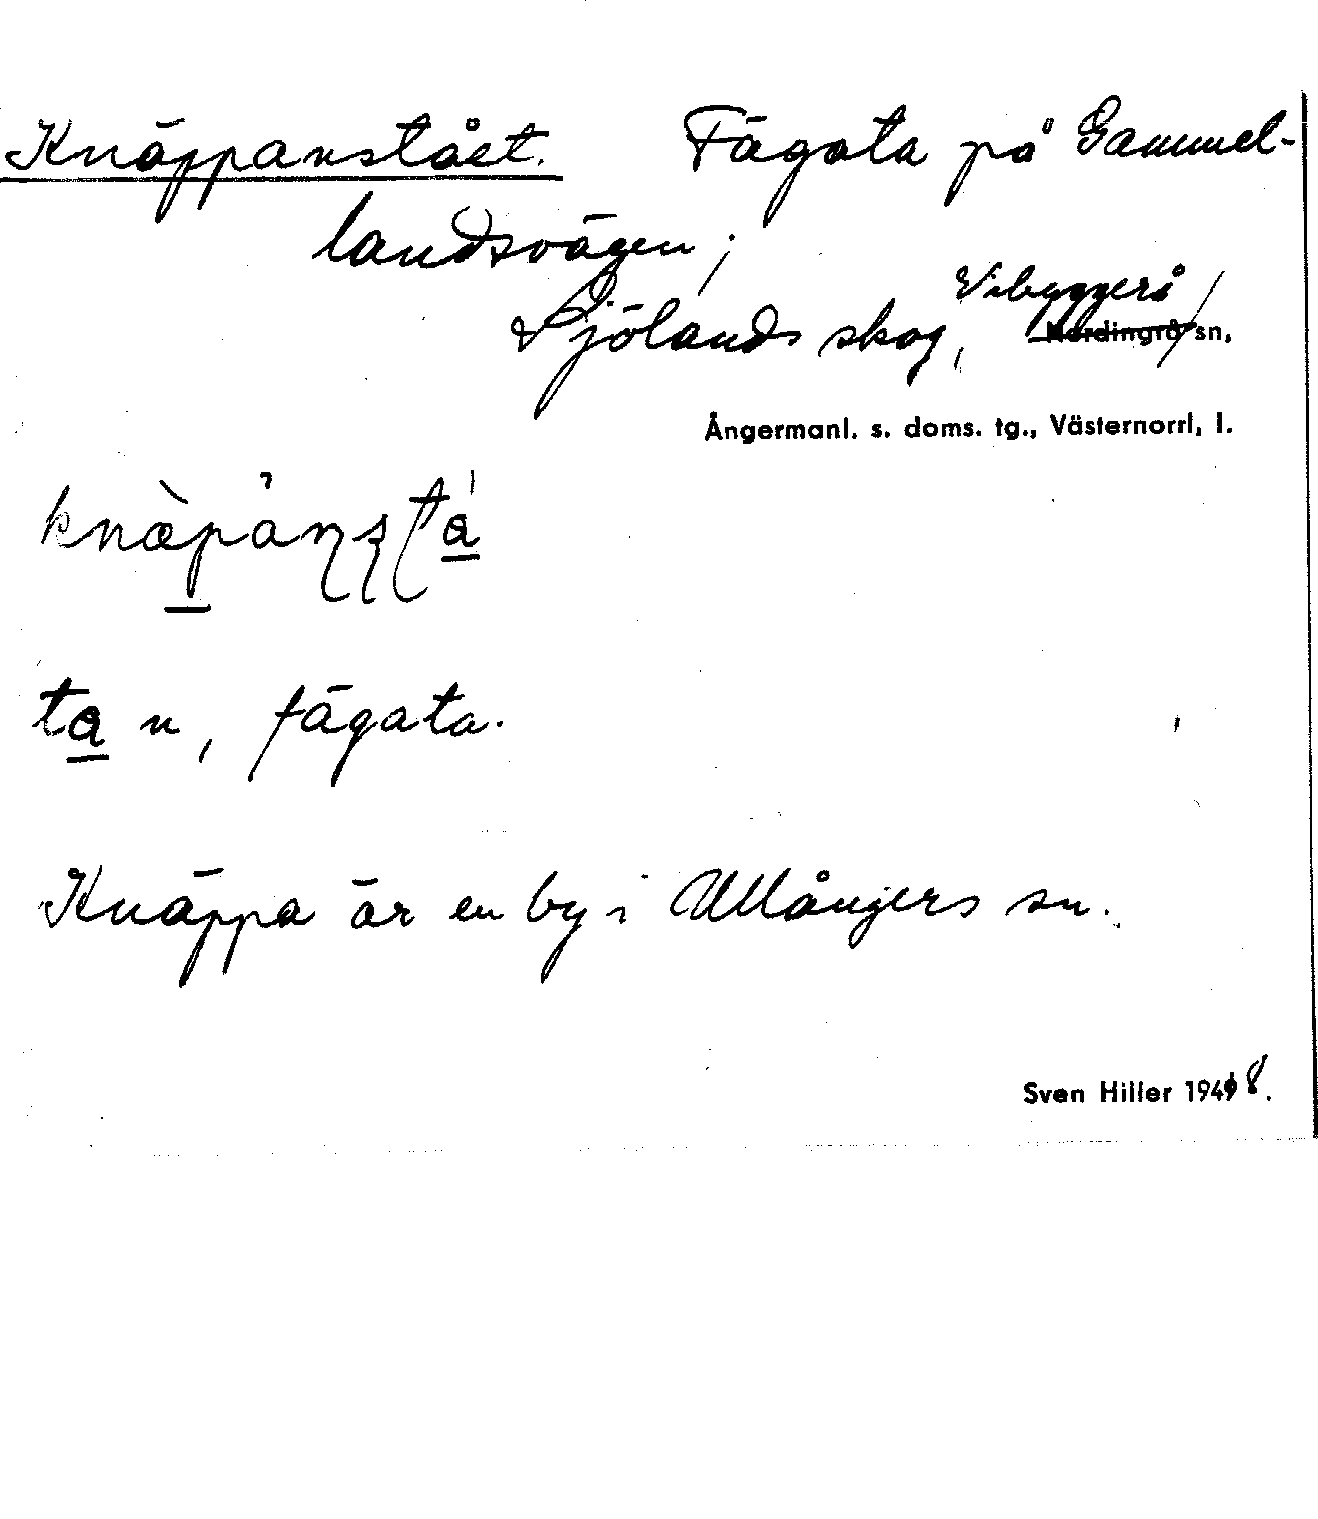 Knäppanstået. Fägata på Gammel-
landsvägen;
Sjölands skog, Vibyggerå
Nordingrå sn,
Ångermanl. s. doms. tg., Västernorrl, l.
ta n, fägata.
Knäppa är en by i Ullångers sn.
Sven Hiller 1948.